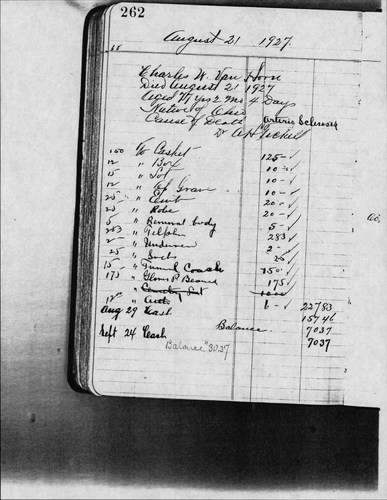 262
August 21 1927
Charles W. Van Horn
Died August 21 1927
Aged 77 yrs 2 mo 4 Days
Native of Ohio
Cause of Death Arterio Sclerosis
Dr A H
150 To Casket 125-
12 " Box 10-
15 " Lot 10-
12 " Op Grave 10-
25 " Emb 20-
25 " Robe 20-
5 " Removal body 5-
283 " Telphn 283
2 " Underwear 2-
25 " Socks 25
15 " Funeral Coach 150-
175 " Gloves P Bearers 175
" Cemetery Lot 1000
" Auto 1- 22783
Aug 29 Cash 15746
Balance 7037
Sept 24 Cash 7037
Balance $30.37